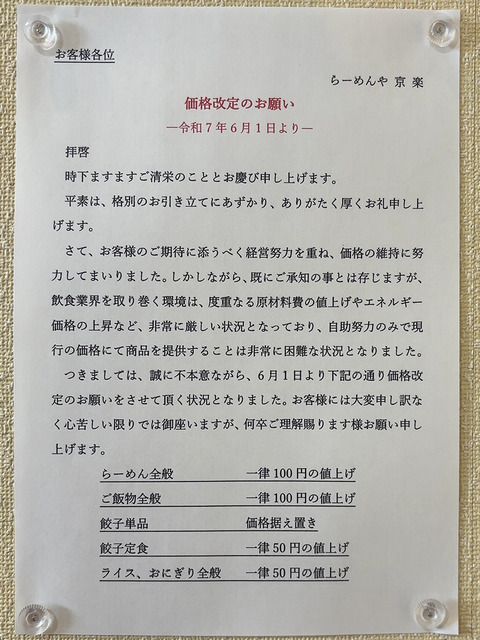 お客様各位
らーめんや 京 楽
価格改定のお願い
―令和7年6月1日より―
拝啓
時下ますますご清栄のこととお慶び申し上げます。
平素は、格別のお引き立てにあずかり、ありがたく厚くお礼申し上
げます。
さて、お客様のご期待に添うべく経営努力を重ね、価格の維持に努
力してまいりました。しかしながら、既にご承知の事とは存じますが、
飲食業界を取り巻く環境は、度重なる原材料費の値上げやエネルギー
価格の上昇など、非常に厳しい状況となっており、自助努力のみで現
行の価格にて商品を提供することは非常に困難な状況となりました。
つきましては、誠に不本意ながら、6月1日より下記の通り価格改
定のお願いをさせて頂く状況となりました。お客様には大変申し訳な
く心苦しい限りでは御座いますが、何卒ご理解賜ります様お願い申し
上げます。
らーめん全般 一律100円の値上げ
ご飯物全般 一律100円の値上げ
餃子単品 価格据え置き
餃子定食 一律50円の値上げ
ライス、おにぎり全般 一律50円の値上げ